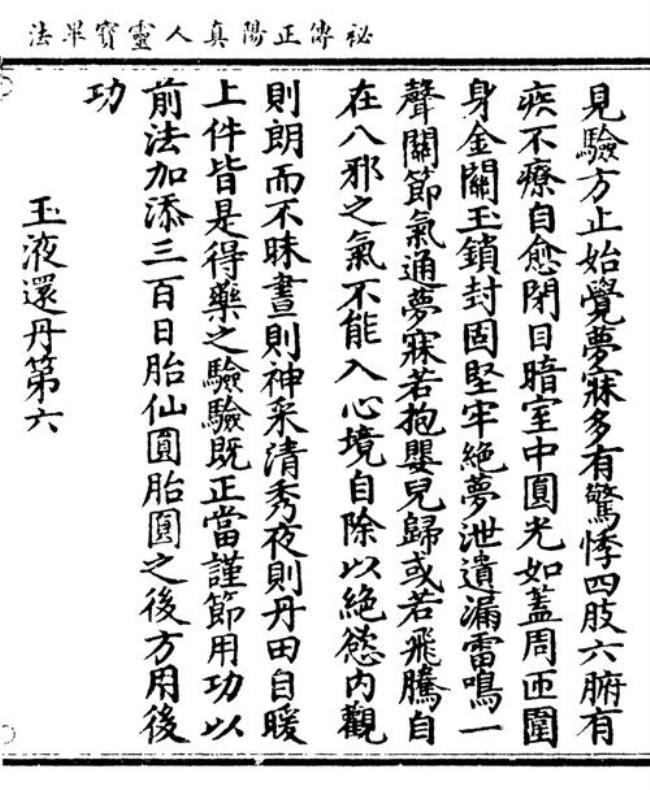 祕傳正陽真人靈寶畢法
見驗方止始覺夢寐多有驚悸四肢六腑有
疾不療自愈閉目暗室中圓光如蓋周匝圍
身金關玉鎖封固堅牢絕夢泄遺漏雷鳴一
聲關節氣通夢寐若抱嬰兒歸或若飛騰自
在八邪之氣不能入心境自除以絕慾內觀
則朗而不昧晝則神采清秀夜則丹田自暖
上件皆是得藥之驗驗既正當謹節用功以
前法加添三百日胎仙圓胎圓之後方用後
功
玉液還丹第六